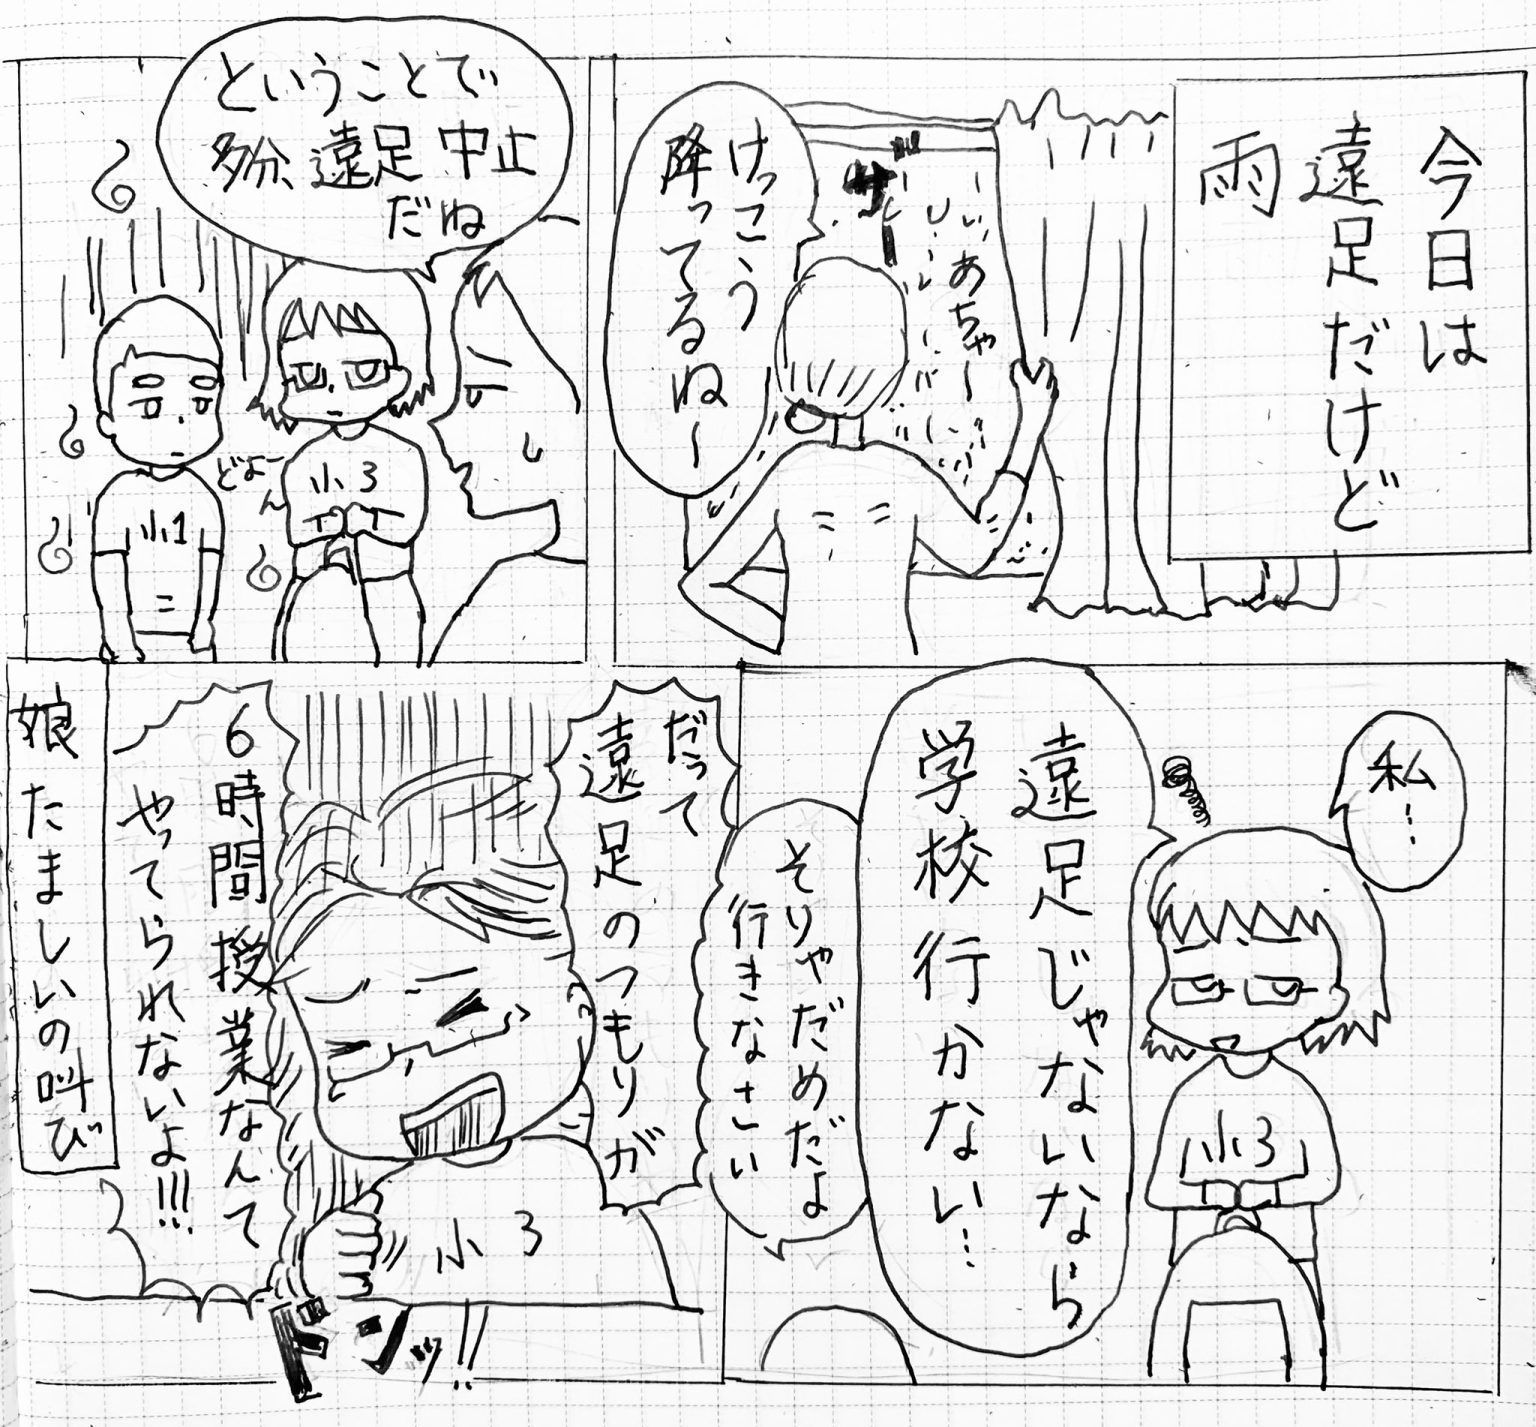 今日は
遠足だけど
雨
ザーッ
あちゃ～
けっこう
降ってるね～
ということで
多分、遠足中止
だね
どよーん
小3
小1
私…
遠足じゃないなら
学校行かない…
そりゃだめだよ
行きなさい
小3
だって
遠足のつもりが
6時間授業なんて
やってられないよ!!!
小3
ドンッ!!
娘たましいの叫び